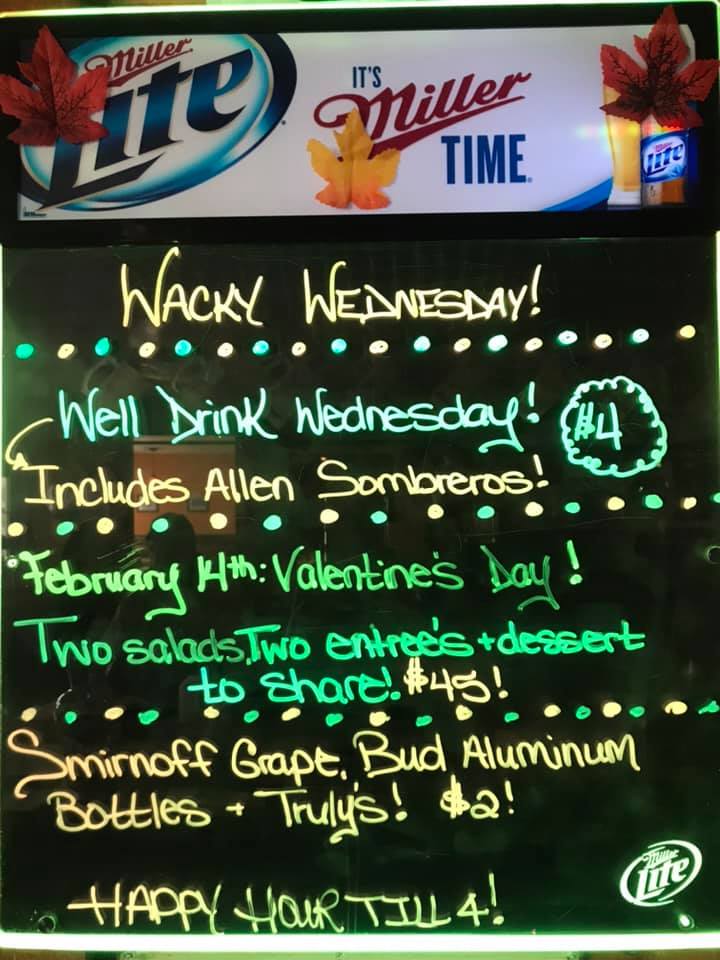 Miller
Lite
IT'S
Miller
TIME
Lite
WACKY WEDNESDAY!
Well Drink Wednesday! $4
Includes Allen Sombreros!
February 14th: Valentine's Day!
Two salads, Two entree's + dessert
to share! $45!
Smirnoff Grape, Bud Aluminum
Bottles + Truly's! $2!
HAPPY HOUR TILL 4!
Miller
Lite